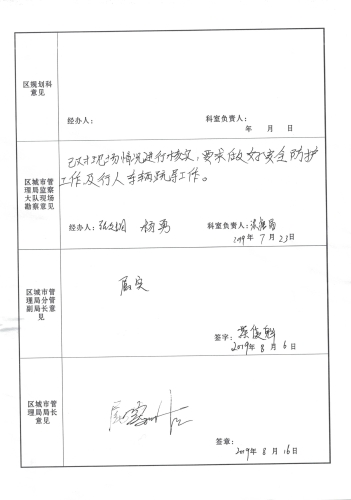 区规划科
意见
经办人：
科室负责人：
年 月 日
区城市管
理局监察
大队现场
勘察意见
已对现场情况进行核实，要求做好安全防护
工作及行人车辆疏导工作。
经办人： 杨勇
科室负责人：
2019年 7月 23日
区城市管
理局分管
副局长意
见
属实
签字：
2019年 8月 6日
区城市管
理局局长
意见
签章：
2019年 8月 16日